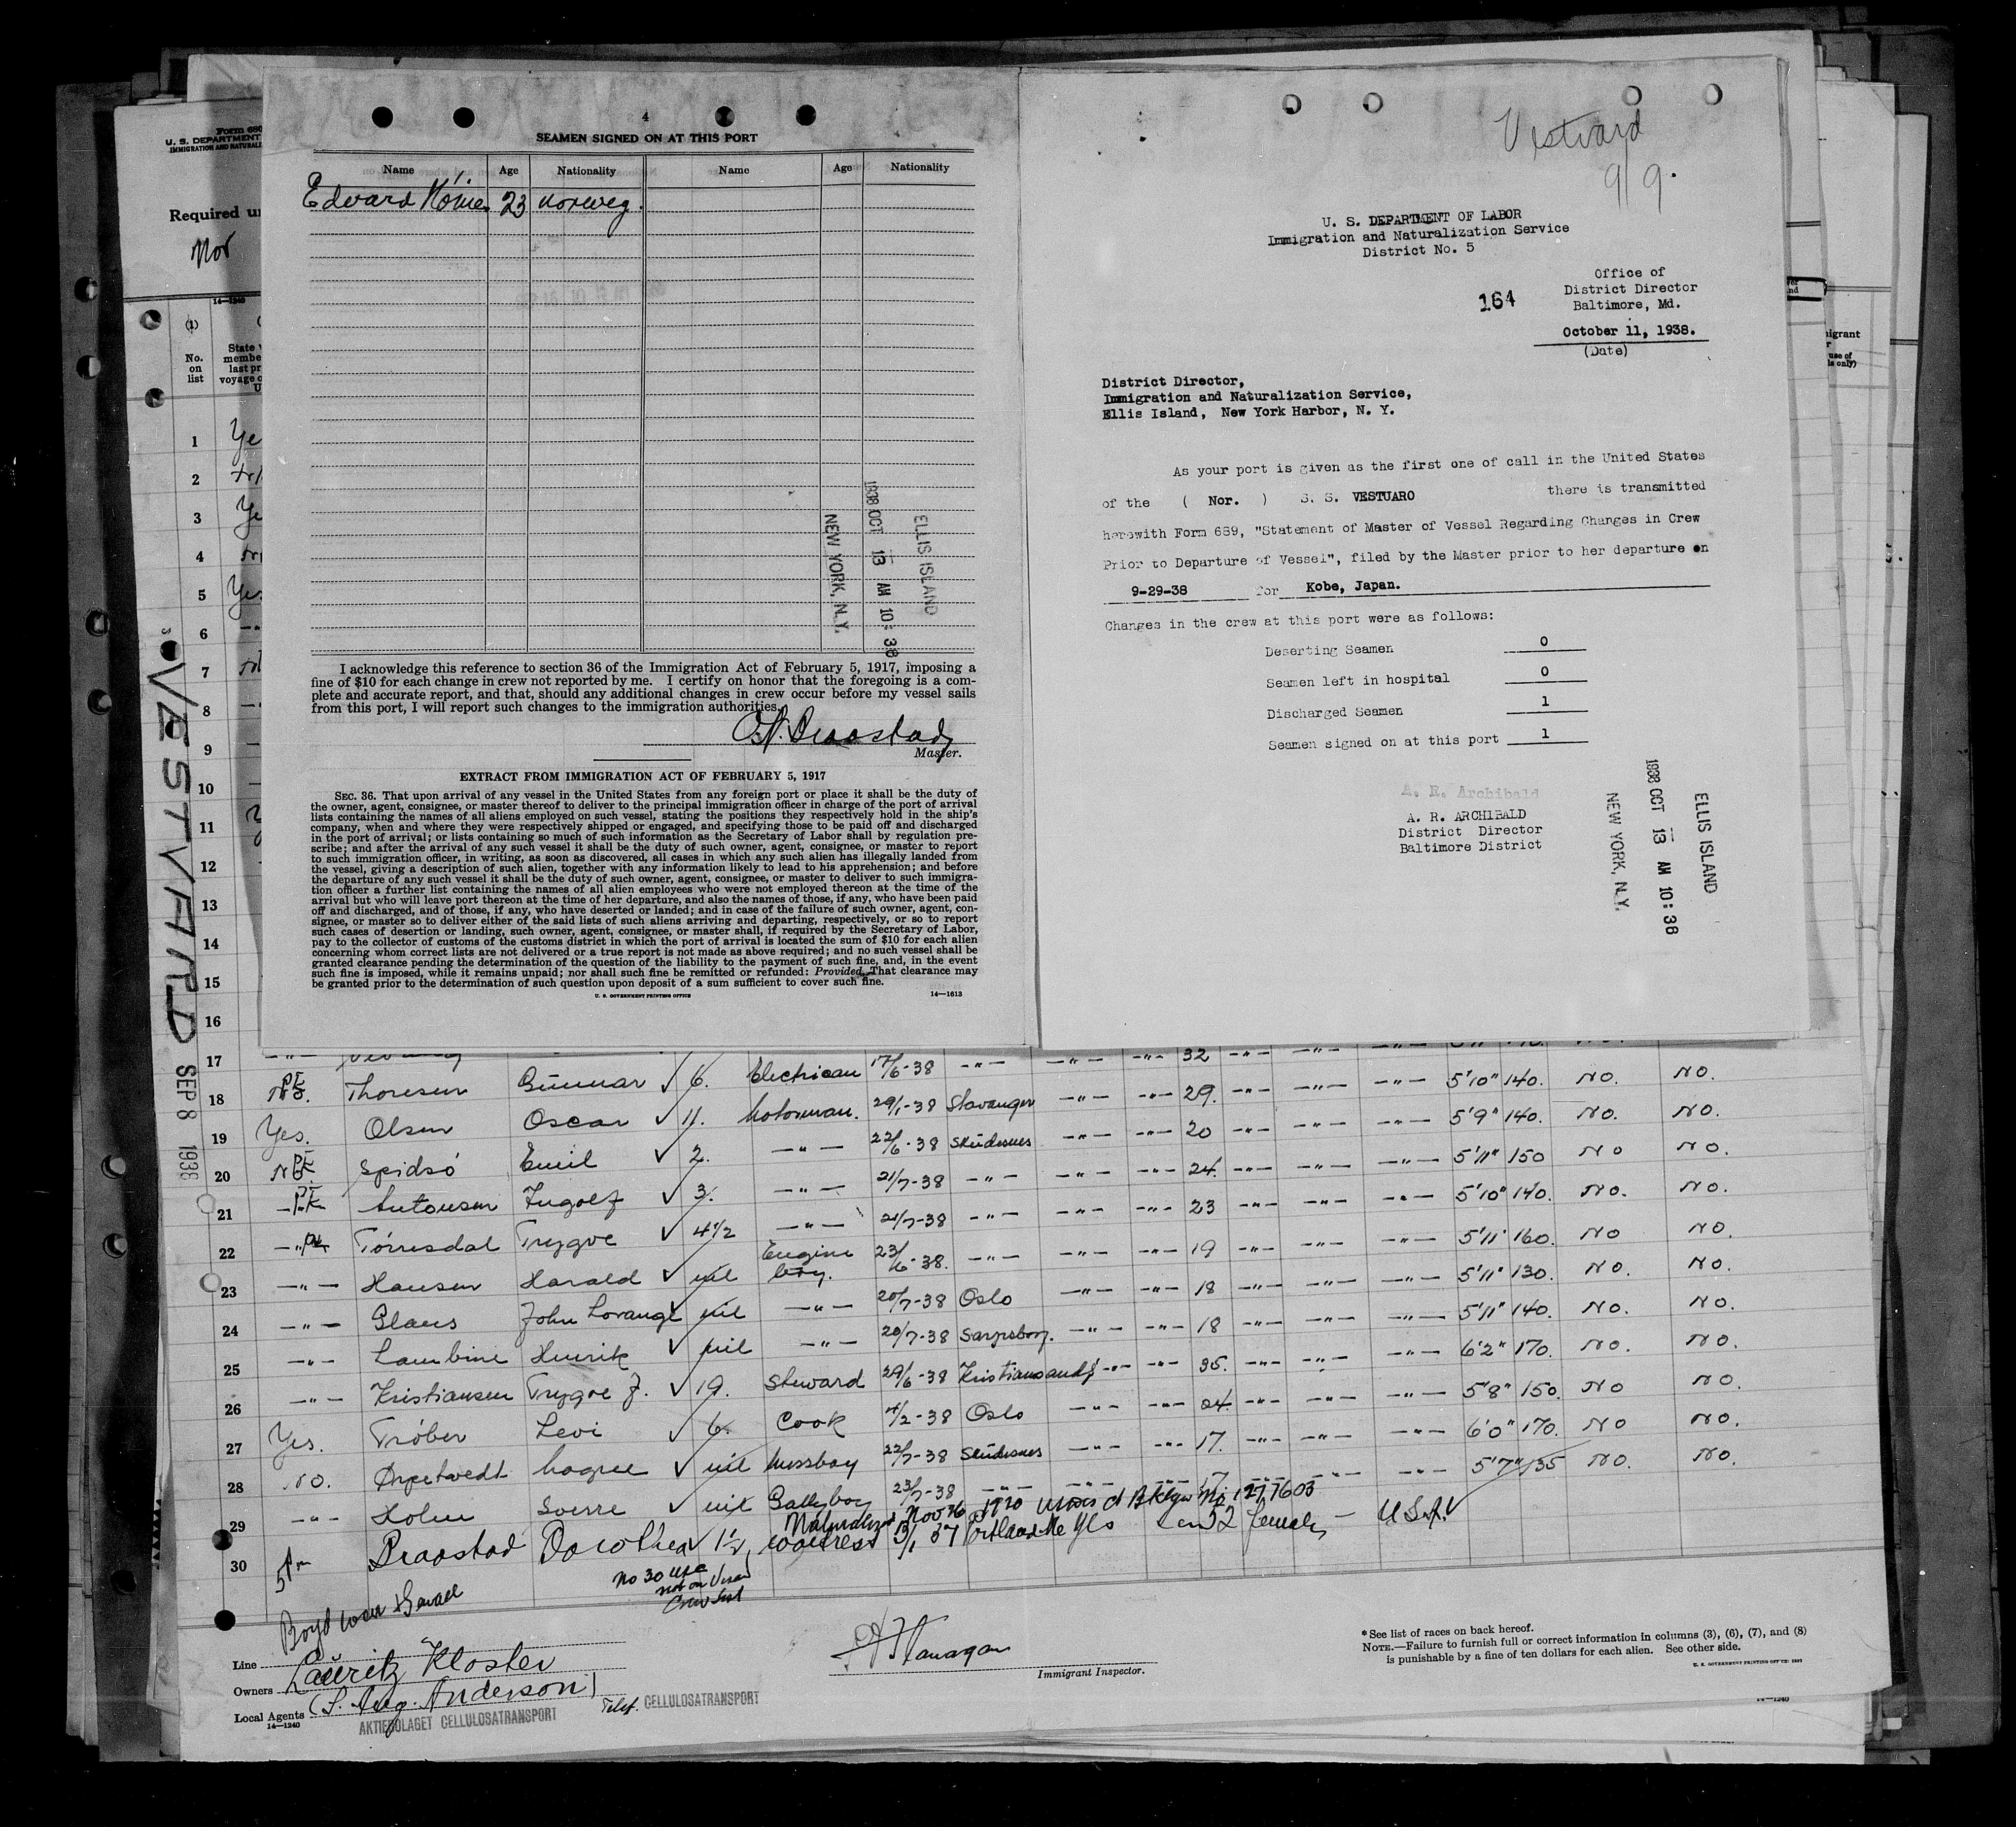 4
SEAMEN SIGNED ON AT THIS PORT
Name Age Nationality Name Age Nationality
Edvard 23 norweg.
ELLIS ISLAND
1938 OCT 13 AM 10:38
NEW YORK, N.Y.
I acknowledge this reference to section 36 of the Immigration Act of February 5, 1917, imposing a
fine of $10 for each change in crew not reported by me. I certify on honor that the foregoing is a com-
plete and accurate report, and that, should any additional changes in crew occur before my vessel sails
from this port, I will report such changes to the immigration authorities.
Master.
EXTRACT FROM IMMIGRATION ACT OF FEBRUARY 5, 1917
SEC. 36. That upon arrival of any vessel in the United States from any foreign port or place it shall be the duty of
the owner, agent, consignee, or master thereof to deliver to the principal immigration officer in charge of the port of arrival
lists containing the names of all aliens employed on such vessel, stating the positions they respectively hold in the ship's
company, when and where they were respectively shipped or engaged, and specifying those to be paid off and discharged
in the port of arrival; or lists containing so much of such information as the Secretary of Labor shall by regulation pre-
scribe; and after the arrival of any such vessel it shall be the duty of such owner, agent, consignee, or master to report
to such immigration officer, in writing, as soon as discovered, all cases in which any such alien has illegally landed from
the vessel, giving a description of such alien, together with any information likely to lead to his apprehension; and before
the departure of any such vessel it shall be the duty of such owner, agent, consignee, or master to deliver to such immigra-
tion officer a further list containing the names of all alien employees who were not employed thereon at the time of the
arrival but who will leave port thereon at the time of her departure, and also the names of those, if any, who have been paid
off and discharged, and of those, if any, who have deserted or landed; and in case of the failure of such owner, agent, con-
signee, or master so to deliver either of the said lists of such aliens arriving and departing, respectively, or so to report
such cases of desertion or landing, such owner, agent, consignee, or master shall, if required by the Secretary of Labor,
pay to the collector of customs of the customs district in which the port of arrival is located the sum of $10 for each alien
concerning whom correct lists are not delivered or a true report is not made as above required; and no such vessel shall be
granted clearance pending the determination of the question of the liability to the payment of such fine, and, in the event
such fine is imposed, while it remains unpaid; nor shall such fine be remitted or refunded: Provided, That clearance may
be granted prior to the determination of such question upon deposit of a sum sufficient to cover such fine.
U. S. GOVERNMENT PRINTING OFFICE 14—1613
Vestvard
9/9.
U. S. DEPARTMENT OF LABOR
Immigration and Naturalization Service
District No. 5
Office of
District Director
Baltimore, Md.
164
October 11, 1938.
(Date)
District Director,
Immigration and Naturalization Service,
Ellis Island, New York Harbor, N. Y.
As your port is given as the first one of call in the United States
of the ( Nor. ) S. S. VESTUARO there is transmitted
herewith Form 689, "Statement of Master of Vessel Regarding Changes in Crew
Prior to Departure of Vessel", filed by the Master prior to her departure on
9-29-38 for Kobe, Japan.
Changes in the crew at this port were as follows:
Deserting Seamen 0
Seamen left in hospital 0
Discharged Seamen 1
Seamen signed on at this port 1
A. R. Archibald
A. R. ARCHIBALD
District Director
Baltimore District
ELLIS ISLAND
1938 OCT 13 AM 10:38
NEW YORK, N.Y.
Form 680
U. S. DEPARTMENT
IMMIGRATION AND NATURALI
Required un
Nor
14—1240
(1)
No. on list
State w
membe
last pr
voyage o
U
VESTVARD
SEP 8 1938
1 Ye
2
3 Ye
4
5 Yes
6 -"-
7
8
9
10
11
12
13
14
15
16
17 32
18 No. Thoresen Gunnar ✓ 6. Electrican 17/6-38 -"- -"- -"- 29. -"- -"- -"- 5'10" 140. No. No.
19 Yes. Olsen Oscar ✓ 11. Motorman. 29/1-38 Stavanger -"- -"- 20 -"- -"- -"- 5'9" 140. No. No.
20 No. Spidsö Emil ✓ 2. -"- 22/6-38 Skudesnes -"- -"- 24. -"- -"- -"- 5'11" 150 No No.
21 -"- Antonsen Ingolf ✓ 3. -"- 21/7-38 -"- -"- -"- 23 -"- -"- -"- 5'10" 140. No. No.
22 -"- Törresdal Trygve ✓ 4½ -"- 21/7-38 -"- -"- -"- 19 -"- -"- -"- 5'11" 160. No No.
23 -"- Hansen Harald ✓ nil Engine boy. 23/6-38. -"- -"- -"- 18 -"- -"- -"- 5'11" 130. No. No.
24 -"- Glaus John Lorange ✓ nil -"- 20/7-38 Oslo -"- -"- 18 -"- -"- -"- 5'11" 140. No. No.
25 -"- Henrik ✓ nil -"- 20/7-38 Sarpsborg. -"- -"- 35. -"- -"- -"- 6'2" 170. No. No.
26 -"- Kristiansen Trygve J. ✓ 19. Steward 29/6-38 Kristiansand -"- -"- 24. -"- -"- -"- 5'8" 150. No No.
27 Yes. Tröber Levi ✓ 6. Cook 4/2-38 Oslo -"- -"- 17. -"- -"- -"- 6'0" 170. No No.
28 No. Magne ✓ nil Messboy 22/7-38 Skudesnes -"- -"- 17 -"- -"- -"- 5'7" 135 No. No.
29 -"- Holm Sverre ✓ nil Galleyboy 23/7-38 -"-
Naturalized Nov 30 1920 Bklyn No 1277603
30 Draastad Dorothea ✓ 1½ Waitress 37 Portland Me Yes 32 female - U.S.A. ✓
No 30 USC
not on Visaed
Crew List
Line
Owners Lauritz Kloster
Local Agents (S. Aug. Anderson)
14—1240
AKTIEBOLAGET CELLULOSATRANSPORT
Telef. CELLULOSATRANSPORT
Flanagan
Immigrant Inspector.
* See list of races on back hereof.
NOTE.—Failure to furnish full or correct information in columns (3), (6), (7), and (8)
is punishable by a fine of ten dollars for each alien. See other side.
U. S. GOVERNMENT PRINTING OFFICE
14—1240